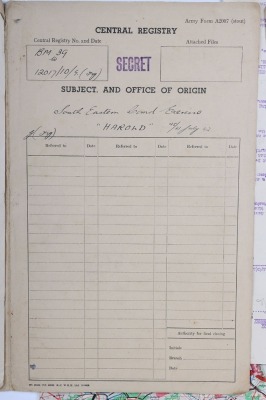 Army Form A2067 (stout)
CENTRAL REGISTRY
Central Registry No. and Date
Attached Files
BM 39
SECRET
SUBJECT, AND OFFICE OF ORIGIN
South Eastern
"HAROLD"
Referred to Date Referred to Date Referred to Date
Authority for least closing
Initials
Branch
Date